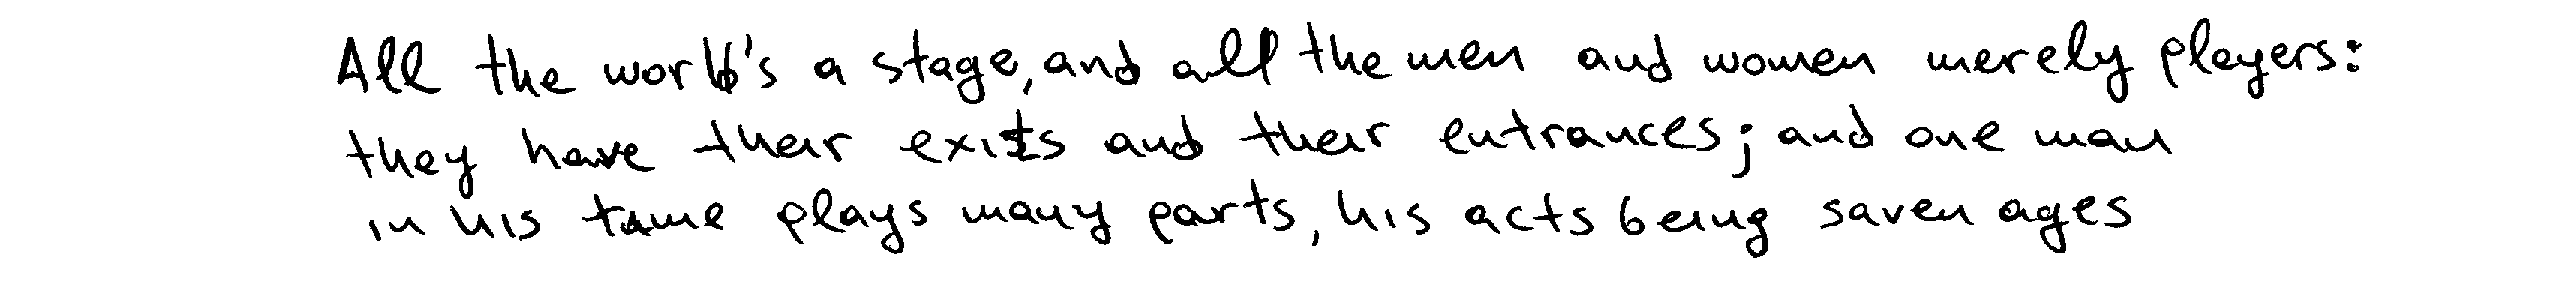 All the world's a stage, and all the men and women merely players:
they have their exits and their entrances; and one man
in his time plays many parts, his acts being saven ages